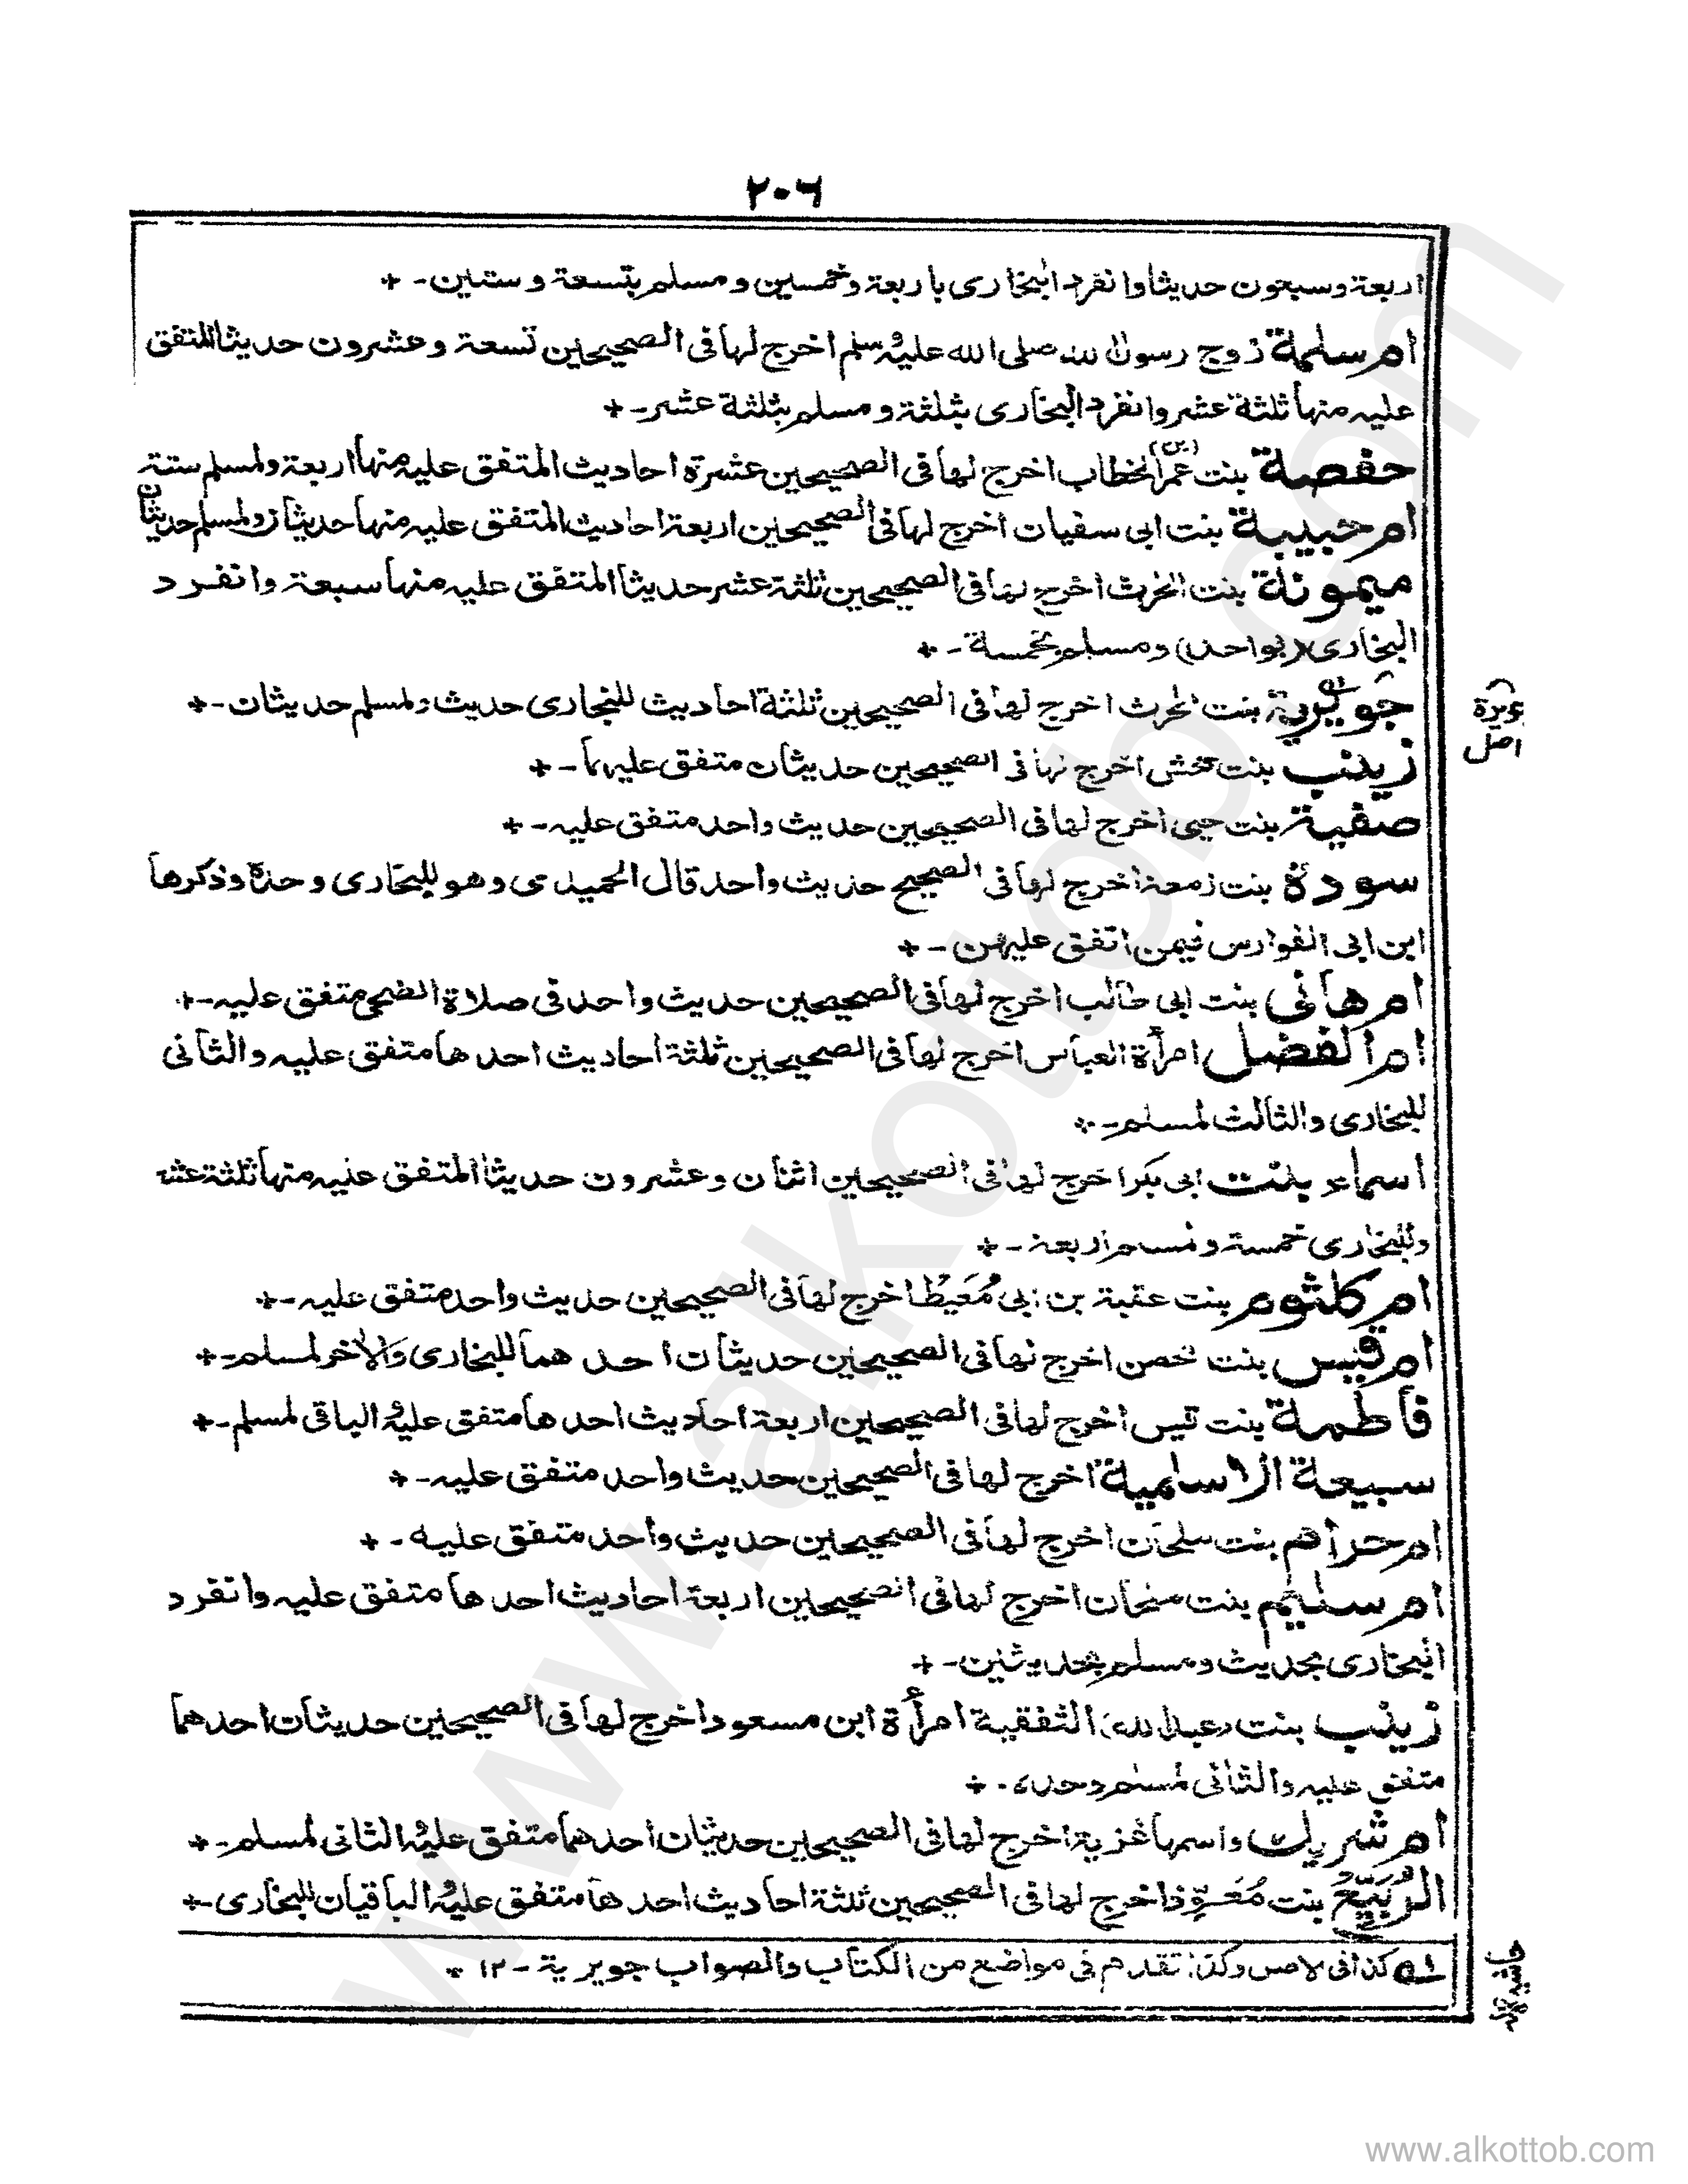 ٢٠٦
اربعة وسبعون حديثا وانفرد البخاری باربعة وخمسين ومسلم بتسعة وستين-+
ام سلمة زوج رسول الله صلی الله عليه وسلم اخرج لها فی الصحيحين تسعة وعشرون حديثا المتفق
عليه منها ثلثة عشر وانفرد البخاری بثلثة ومسلم بثلثة عشر-+
حفصة بنت عمر (بن) الخطاب اخرج لها فی الصحيحين عشرة احاديث المتفق عليه منها اربعة ولمسلم ستة
ام حبيبة بنت ابی سفيان اخرج لها فی الصحيحين اربعة احاديث المتفق عليه منها حديثان ولمسلم حديثان
ميمونة بنت الحرث اخرج لها فی الصحيحين ثلثة عشر حديثا المتفق عليه منها سبعة وانفرد
البخاری (بواحد) ومسلم بخمسة-+
جويرية بنت الحرث اخرج لها فی الصحيحين ثلثة احاديث للبخاری حديث ولمسلم حديثان-+
زينب بنت جحش اخرج لها فی الصحيحين حديثان متفق عليهما-+
صفية بنت حيی اخرج لها فی الصحيحين حديث واحد متفق عليه-+
سودة بنت زمعة اخرج لها فی الصحيح حديث واحد قال الحميدی وهو للبخاری وحده وذكرها
ابن ابی الفوارس فيمن اتفق عليهن-+
ام هانی بنت ابی طالب اخرج لها فی الصحيحين حديث واحد فی صلاة الضحی متفق عليه-+
ام الفضل امرأة العباس اخرج لها فی الصحيحين ثلثة احاديث احدها متفق عليه والثانی
للبخاری والثالث لمسلم-+
اسماء بنت ابی بكر اخرج لها فی الصحيحين اثنان وعشرون حديثا المتفق عليه منها ثلثة عشر
وللبخاری خمسة ولمسلم اربعة-+
ام كلثوم بنت عقبة بن ابی مُعَيْط اخرج لها فی الصحيحين حديث واحد متفق عليه-+
ام قيس بنت محصن اخرج لها فی الصحيحين حديثان احدهما للبخاری والاخر لمسلم-+
فاطمة بنت قيس اخرج لها فی الصحيحين اربعة احاديث احدها متفق عليه والباقی لمسلم-+
سبيعة الاسلمية اخرج لها فی الصحيحين حديث واحد متفق عليه-+
ام حرام بنت ملحان اخرج لها فی الصحيحين حديث واحد متفق عليه-+
ام سليم بنت ملحان اخرج لها فی الصحيحين اربعة احاديث احدها متفق عليه وانفرد
البخاری بحديث ومسلم بحديثين-+
زينب بنت (عبد الله) الثقفية امرأة ابن مسعود اخرج لها فی الصحيحين حديثان احدهما
متفق عليه والثانی لمسلم وحده-+
ام شريك واسمها غزية اخرج لها فی الصحيحين حديثان احدهما متفق عليه والثانی لمسلم-+
الرُّبَيِّع بنت مُعَوِّذ اخرج لها فی الصحيحين ثلثة احاديث احدها متفق عليه والباقيان للبخاری-+
١ كذا فی الاصل وكذا تقدم فی مواضع من الكتاب والصواب جويرية-١٢
اصل
www.alkottob.com
www.alkottob.com